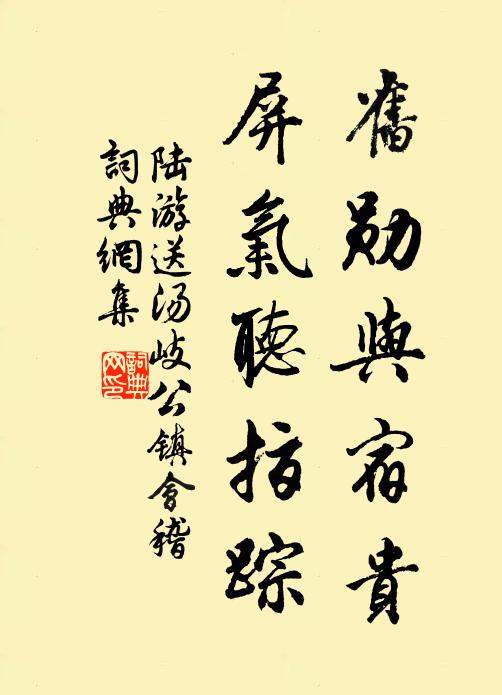 舊勛與宿貴
屏氣聽指踪
陆游送汤岐公镇會稽
詞典網集
詞典网印